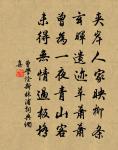 夹岸人家映柳条
玄晖遗迹草萧萧
曾为一夜青山客
未得无情过板桥